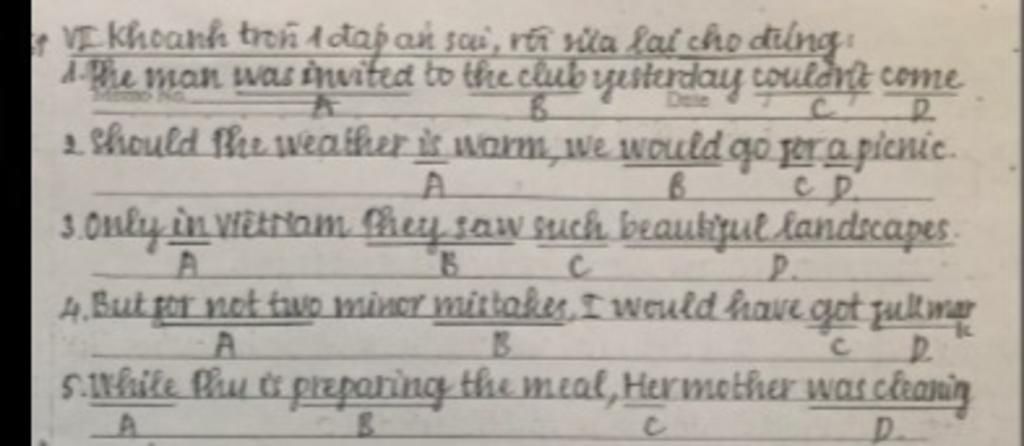 VI Khoanh tròn 1 đáp án sai, rồi sửa lại cho đúng:
1. The man was invited to the club yesterday couldn't come
Memo No. Date
A B C D
2. Should the weather is warm, we would go for a picnic.
A B C D.
3. Only in Vietnam they saw such beautiful landscapes.
A B C D.
4. But for not two minor mistakes, I would have got full mark
A B C D.
5. While Thu is preparing the meal, Her mother was cleanig
A B C D.